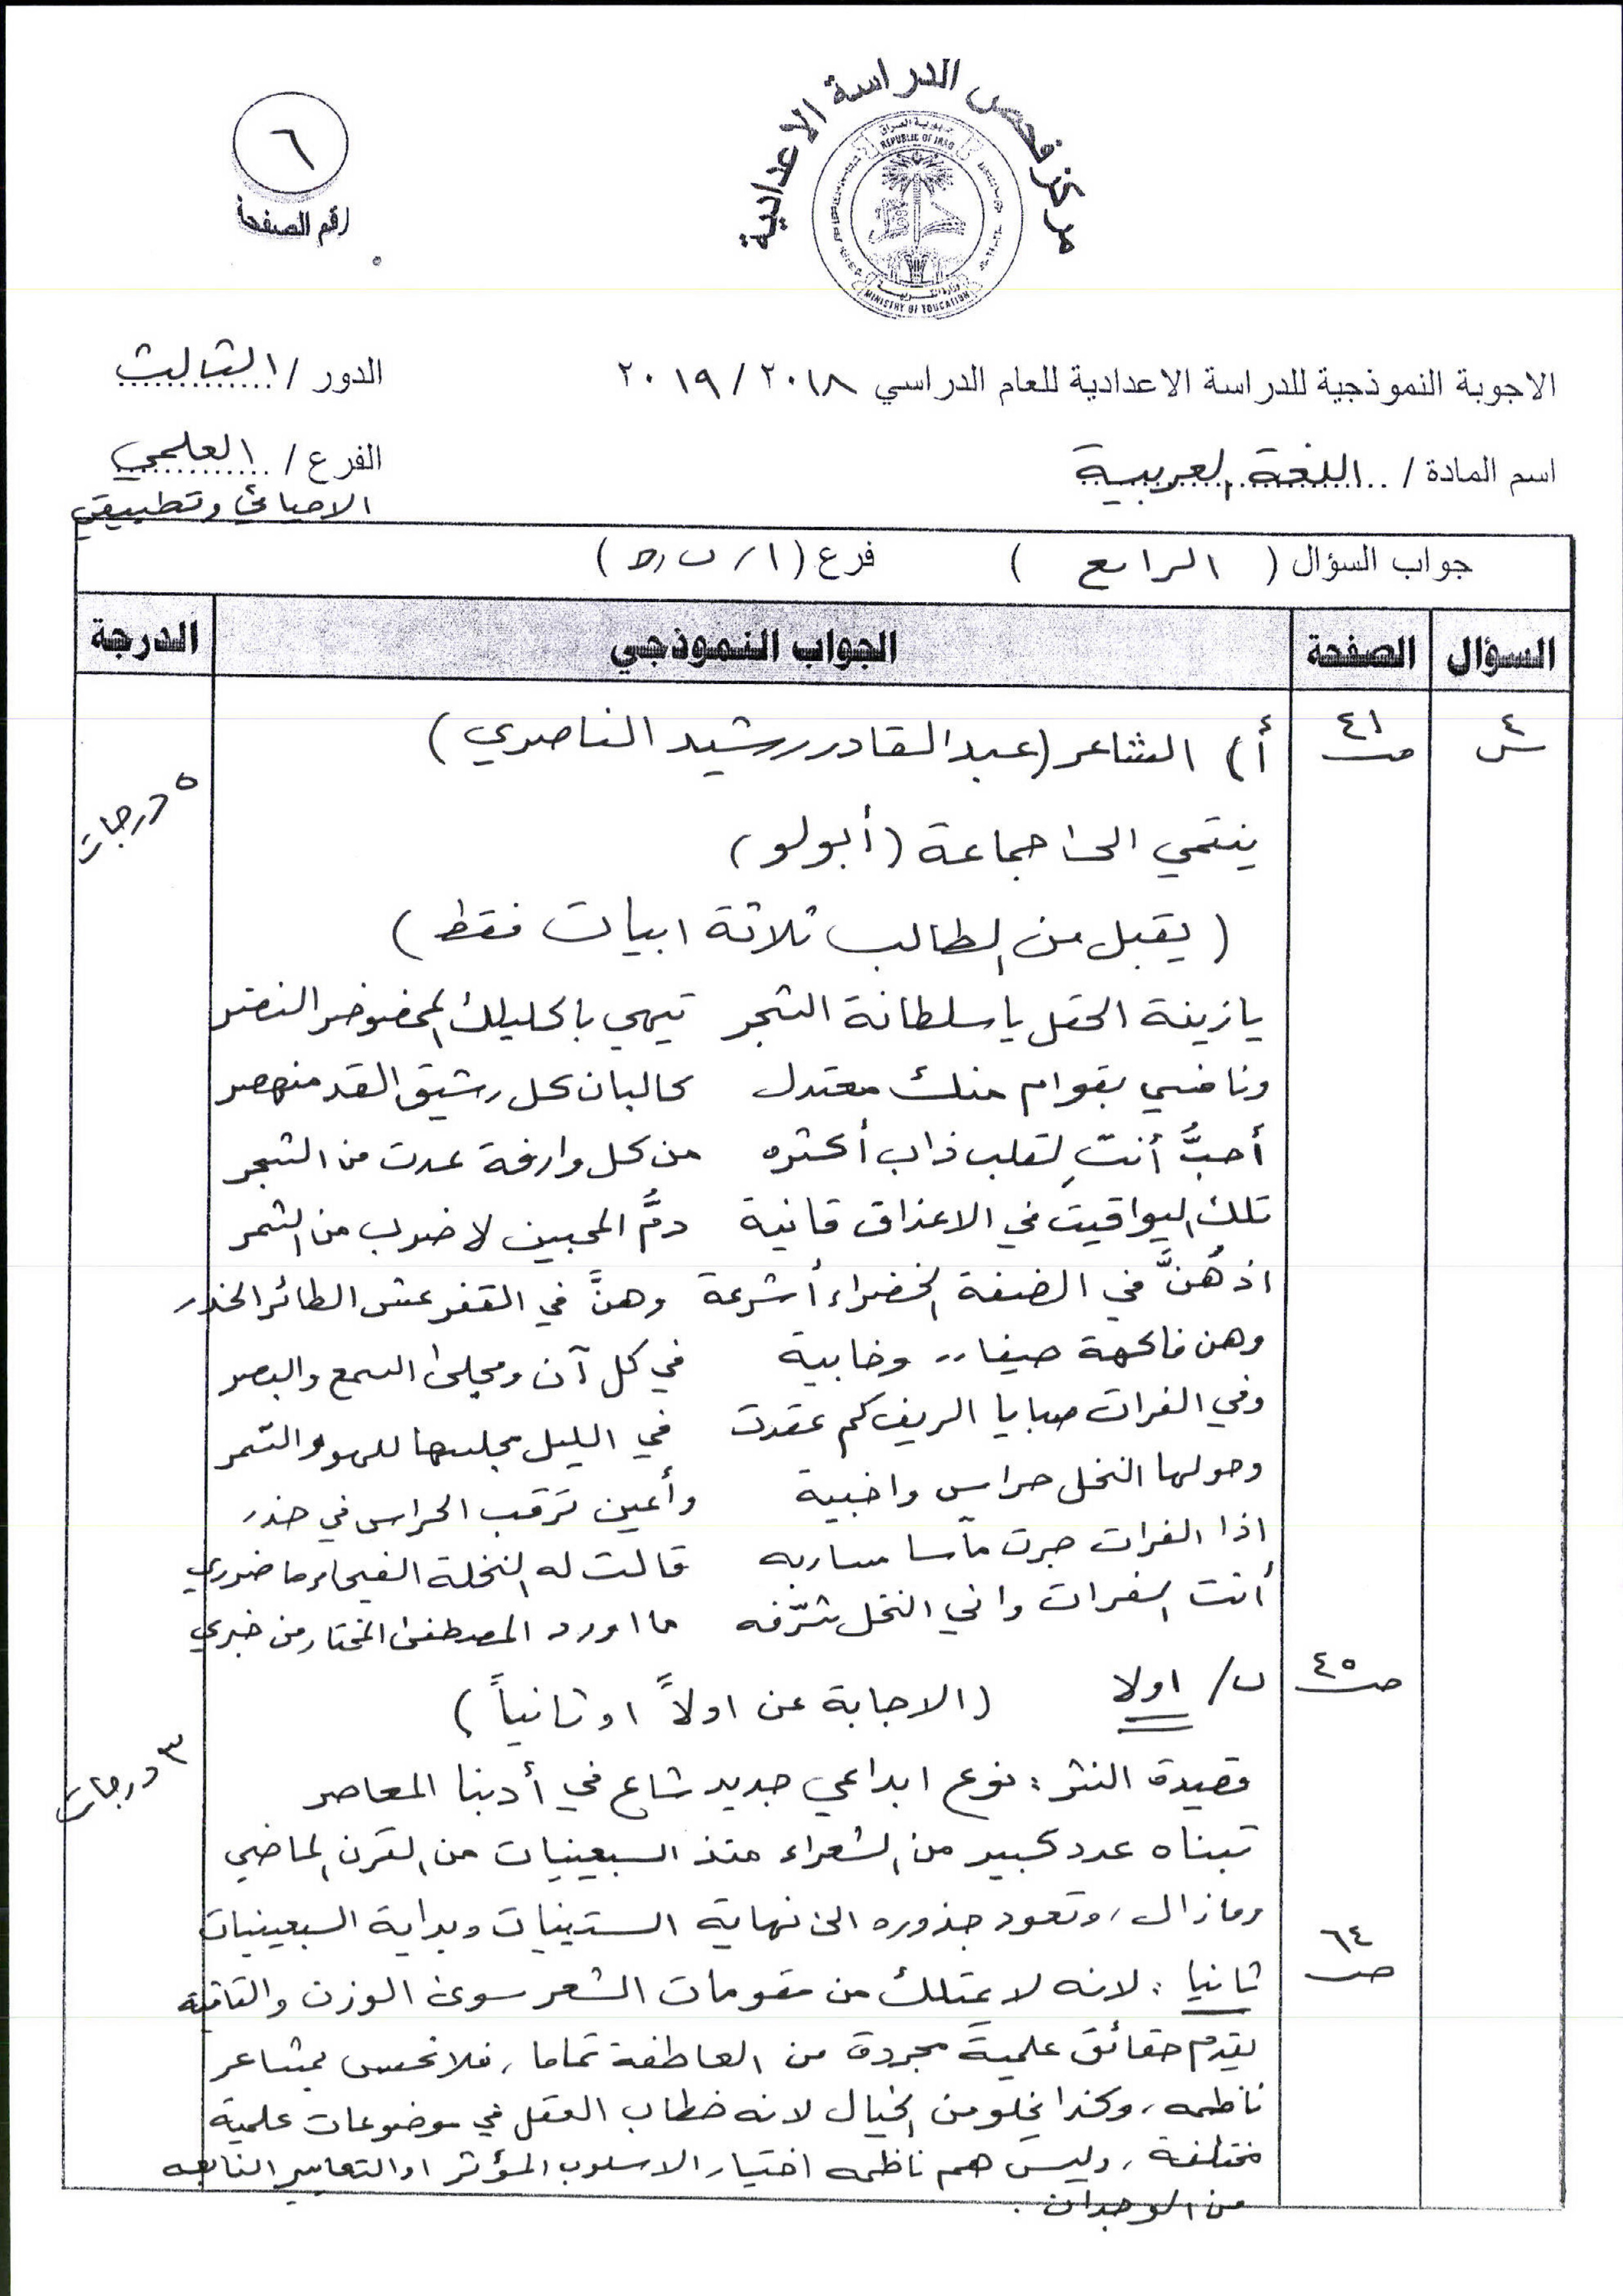 مركز فحص الدراسة الاعدادية
جمهورية العراق
REPUBLIC OF IRAQ
وزارة التربية
MINISTRY OF EDUCATION
٦
رقم الصفحة
الاجوبة النموذجية للدراسة الاعدادية للعام الدراسي ٢٠١٨ / ٢٠١٩
الدور / الثالث
اسم المادة / اللغة العربية
الفرع / العلمي
الاحيائي وتطبيقي
جواب السؤال ( الرابع ) فرع ( أ / ب )
السؤال الصفحة الجواب النموذجي الدرجة
س٤ ص٤١ أ) الشاعر (عبد القادر رشيد الناصري)
٥ درجات
ينتمي الى جماعة (أبولو)
(يقبل من الطالب ثلاثة ابيات فقط)
يا زينة الحقل يا سلطانة الشجر تيهي باكليلك المخضوضر النضر
ونافسي بقوام منك معتدل كالبان كل رشيق القد منهصر
أحبُّ أنتِ لقلب ذاب أكثره من كل وارفة عدت من الشجر
تلك اليواقيت في الاعذاق قانية دمُّ المحبين لا ضرب من الثمر
اذ هُنَّ في الضفة الخضراء أشرعة وهنَّ في القفر عش الطائر الحذر
وهن فاكهة صيفا وخابية في كل آن ومجلى السمع والبصر
وفي الفرات صبايا الريف كم عقدت في الليل مجلسها للهو والسّمر
وحولها النخل حراس واخبية وأعين ترقب الحراس في حذر
اذا الفرات جرت مآسا مساربه قالت له النخلة الفيحاء ما ضرري
أنت الفرات واني النخل شرّفه ما اورد المصطفى المختار من خبري
ص٤٥ ب/ اولا (الاجابة عن اولاً او ثانياً)
٣ درجات
قصيدة النثر : نوع ابداعي جديد شاع في أدبنا المعاصر
تبناه عدد كبير من الشعراء منذ السبعينيات من القرن الماضي
ومازال ، وتعود جذوره الى نهاية الستينيات وبداية السبعينيات
ص٦٤ ثانيا : لانه لا يمتلك من مقومات الشعر سوى الوزن والقافية
يقدم حقائق علمية مجردة من العاطفة تماما ، فلا نحس بمشاعر
ناظمه ، وكذا يخلو من الخيال لانه خطاب العقل في موضوعات علمية
مختلفة ، وليس هم ناظمه اختيار الاسلوب المؤثر او التعابير النابعه
من الوجدان .